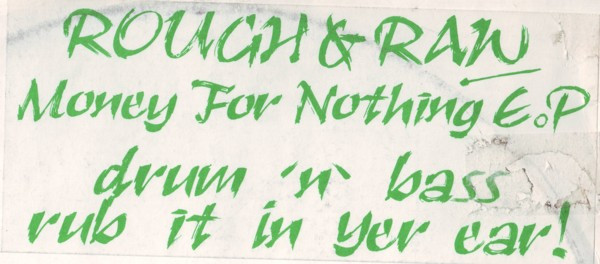 ROUGH & RAW
Money For Nothing E.P
drum 'n' bass
rub it in yer ear!